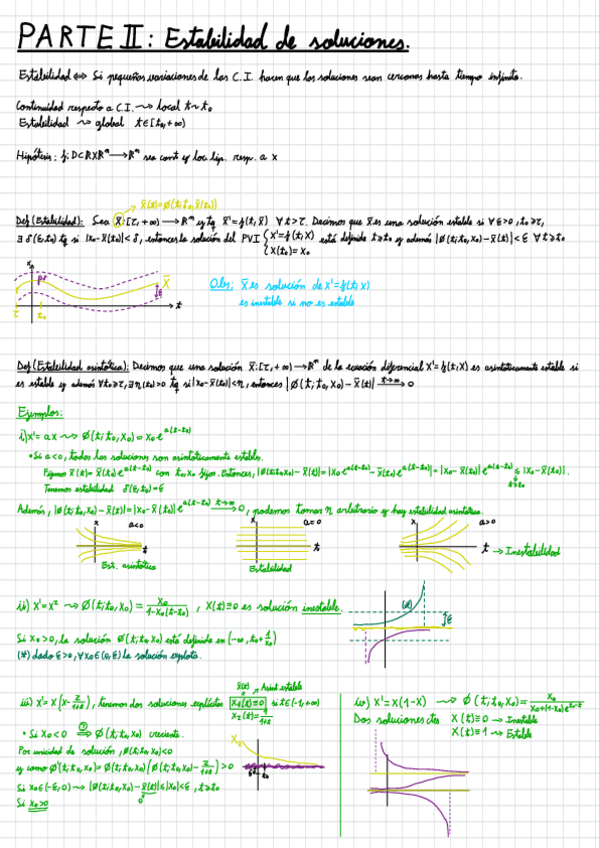 PARTE II: Estabilidad de soluciones.
Estabilidad ⟺ Si pequeñas variaciones de las C.I. hacen que las soluciones sean cercanas hasta tiempo infinito.
Continuidad respecto a C.I. ⇝ local t~t₀
Estabilidad ⇝ global t∈[t₀,+∞)
Hipótesis: f: D⊂R×Rⁿ ⟶ Rⁿ sea cont y loc. lip. resp. a x
x̄(t)=∅(t;t₀,x̄(t₀))
Def (Estabilidad): Sea x̄:[τ,+∞) ⟶ Rⁿ y tq x̄'=f(t,x̄) ∀t>τ. Decimos que x̄ es una solución estable si ∀ε>0, t₀≥τ,
∃ δ(ε,t₀) tq si |x₀-x̄(t₀)|<δ, entonces la solución del PVI { x'=f(t,x) x(t₀)=x₀ está definida t≥t₀ y además |∅(t;t₀,x₀)-x̄(t)|<ε ∀t≥t₀
x x̄ ε t τ t₀
Obs: x̄ es solución de x'=f(t,x)
es inestable si no es estable
Def (Estabilidad asintótica): Decimos que una solución x̄:[τ,+∞) ⟶ Rⁿ de la ecuación diferencial x'=f(t,x) es asintóticamente estable si
es estable y además ∀t₀≥τ, ∃η(t₀)>0 tq si |x₀-x̄(t₀)|<η, entonces |∅(t,t₀,x₀)-x̄(t)| t→∞ ⟶ 0
Ejemplos:
i) x'=ax ⇝ ∅(t;t₀,x₀)=x₀e^a(t-t₀)
• Si a<0, todas las soluciones son asintóticamente estables.
Fijamos x̄(t)=x̄(t₀)e^a(t-t₀) con t₀,x₀ fijos. Entonces, |∅(t;t₀,x₀)-x̄(t)|=|x₀e^a(t-t₀)-x̄(t₀)e^a(t-t₀)|=|x₀-x̄(t₀)|e^a(t-t₀) ≤ |x₀-x̄(t₀)|.
t≥t₀
Tenemos estabilidad δ(ε,t₀)=ε
Además, |∅(t;t₀,x₀)-x̄(t)|=|x₀-x̄(t₀)|e^a(t-t₀) t→∞ ⟶ 0, podemos tomar η arbitrario y hay estabilidad asintótica.
x a<0 t x a=0 t x a>0 t → Inestabilidad
Est. asintótica Estabilidad
ii) x'=x² ⇝ ∅(t;t₀,x₀)= x₀/(1-x₀(t-t₀)), x(t)≡0 es solución inestable.
(*) ε
Si x₀>0, la solución ∅(t;t₀,x₀) está definida en (-∞,t₀+1/x₀)
(*) dado ε>0, ∀x₀∈(0,ε) la solución explota.
iii) x'=x(x-2/(1+t)), tenemos dos soluciones explícitas x₁(t)≡0 si t∈(-1,+∞)
x̄(t) → Asint estable
x₂(t)=2/(1+t)
• Si x₀<0 ⟹ ∅(t;t₀,x₀) creciente.
Por unicidad de solución, ∅(t;t₀,x₀)<0
y como ∅'(t;t₀,x₀)=∅(t;t₀,x₀)(∅(t;t₀,x₀)-2/(1+t))>0
Si x₀∈(-ε,0) ⇝ |∅(t;t₀,x₀)-x̄(t)|≤|x₀|<ε, t≥t₀
0
Si x₀>0
x₂
iv) x'=x(1-x) ⇝ ∅(t;t₀,x₀)=
Dos soluciones ctes x(t)≡0 → Inestable
x(t)≡1 → Estable